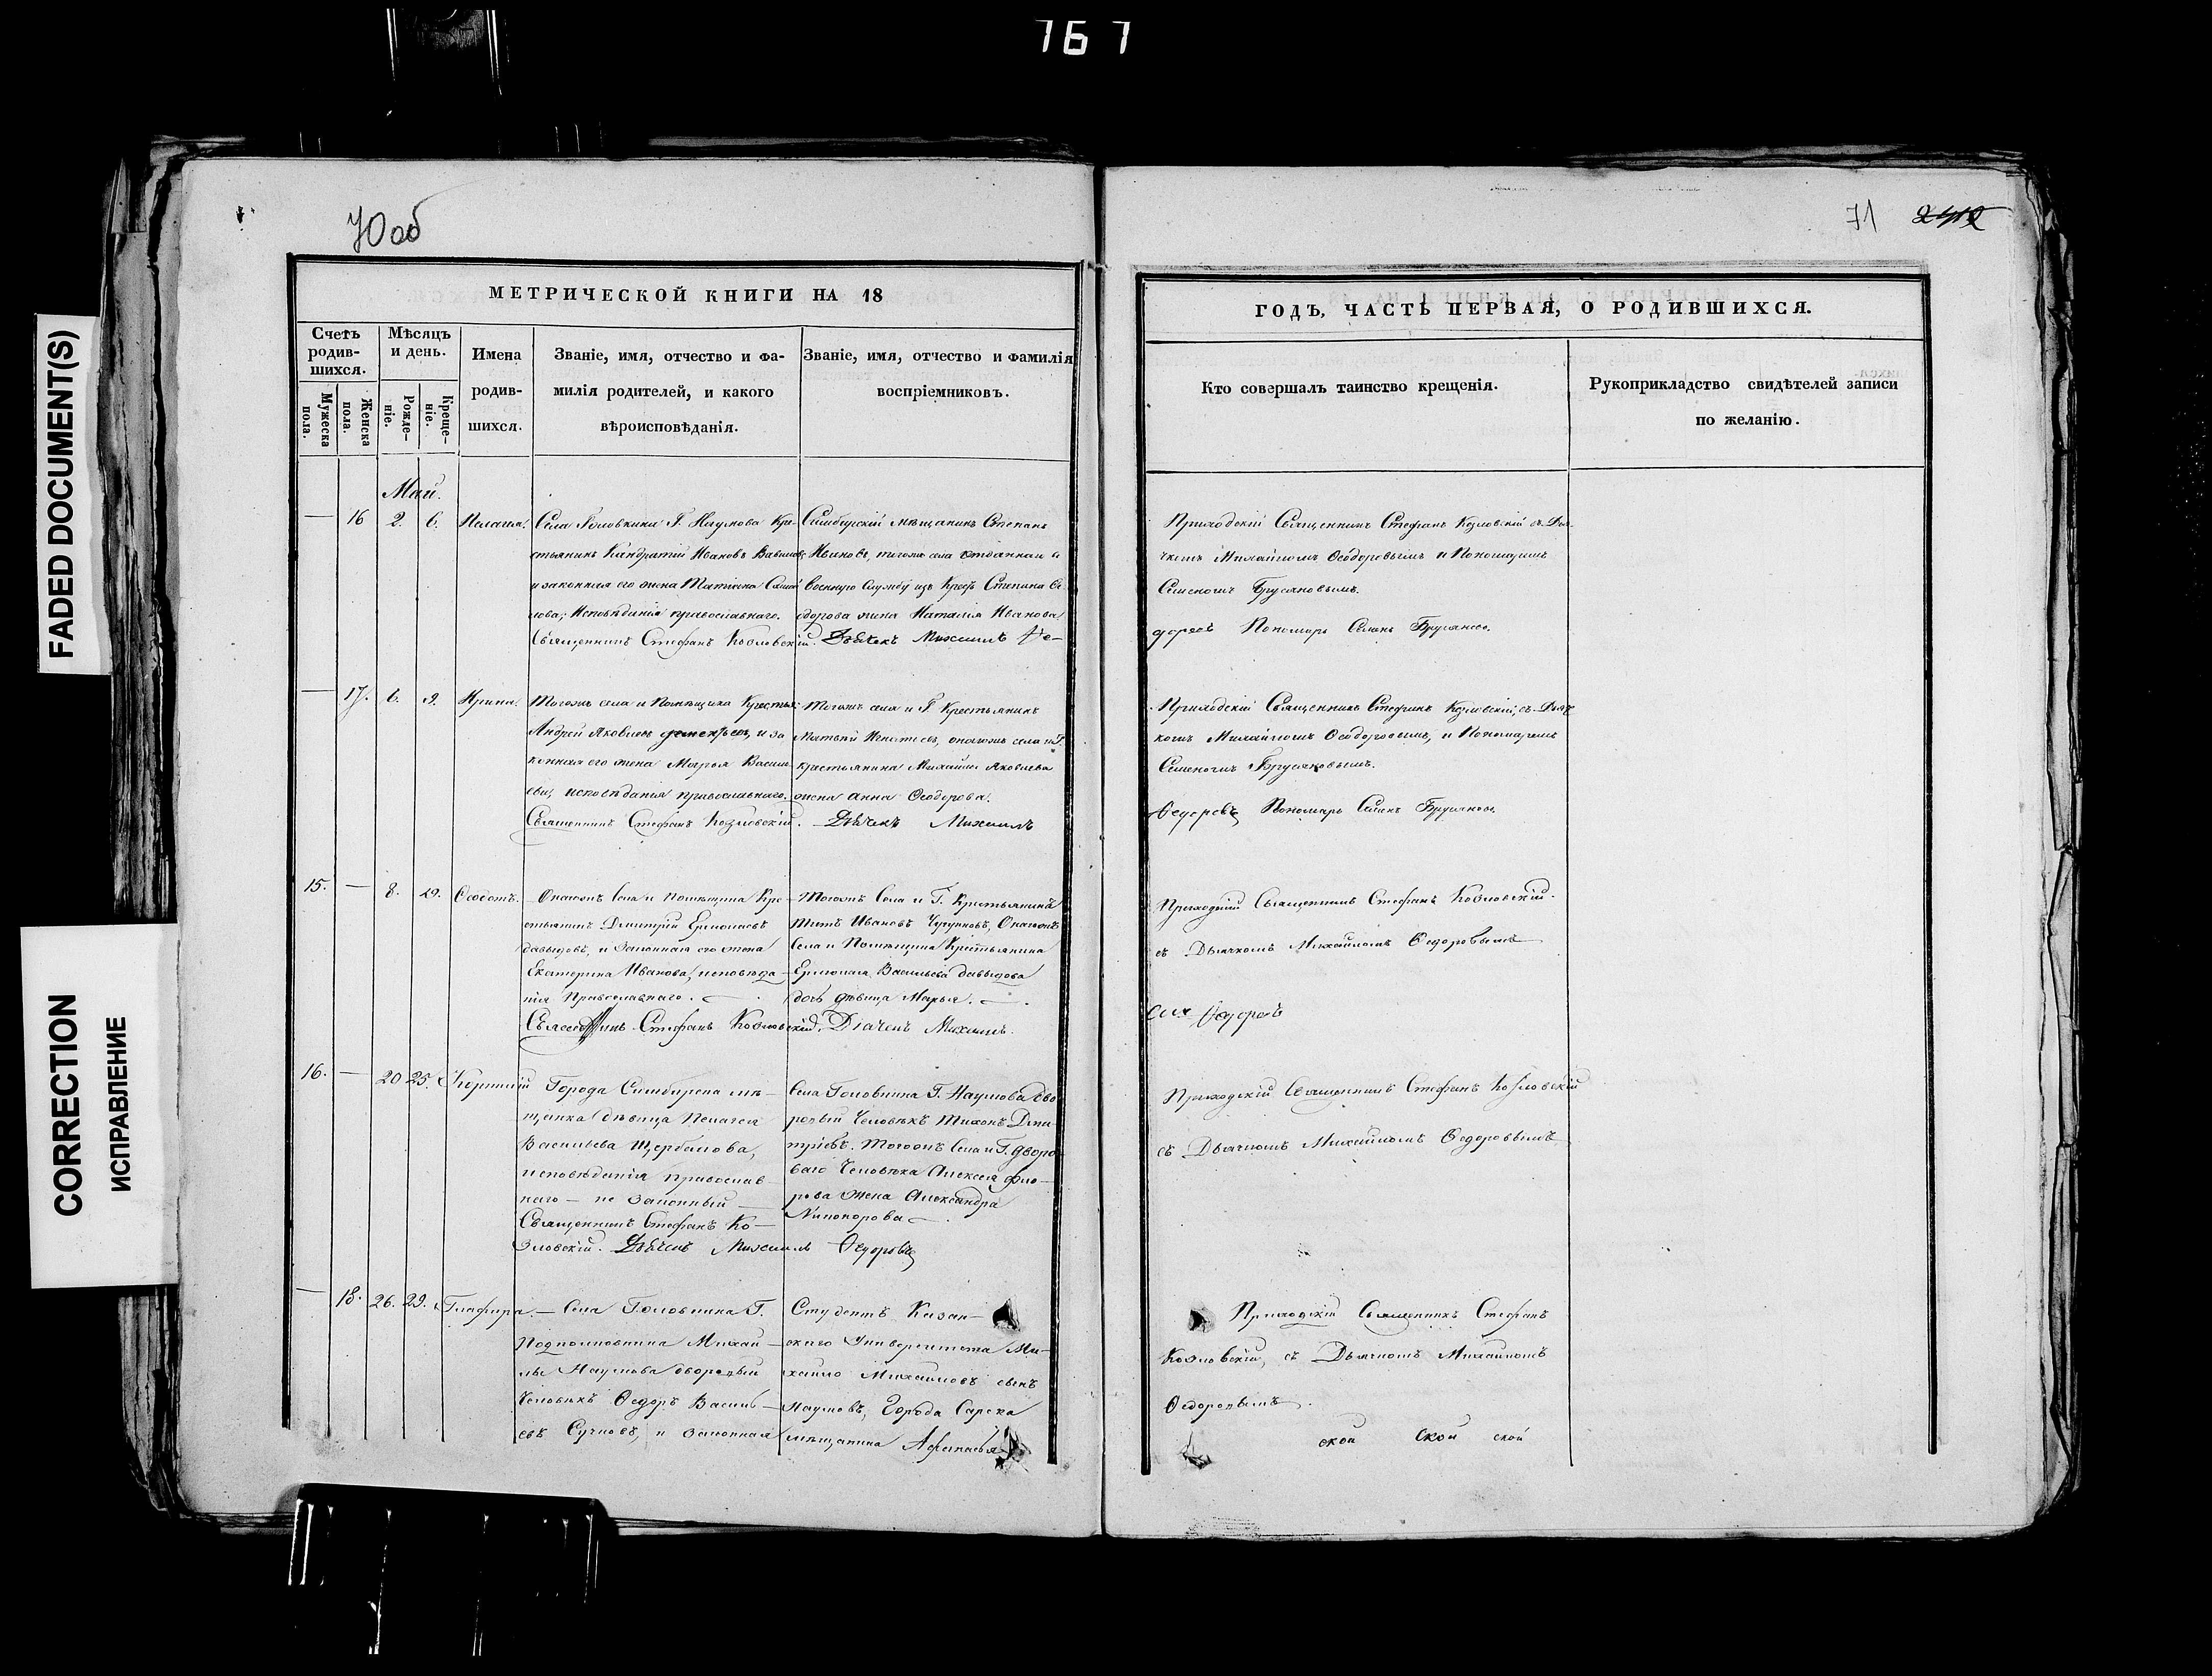 767
FADED DOCUMENT(S)
CORRECTION
ИСПРАВЛЕНИЕ
70 об
МЕТРИЧЕСКОЙ КНИГИ НА 18
Счетъ родив-шихся.
Мужеска пола.
Женска пола.
Мѣсяцъ и день.
Рожде-ніе.
Креще-ніе.
Имена
родив-
шихся.
Званіе, имя, отчество и фа-
милія родителей, и какого
вѣроисповѣданія.
Званіе, имя, отчество и фамилія
воспріемниковъ.
Май.
— 16 2. 6. Пелагія.
Села Головкина Г. Наумова Кре-
стьянинъ Кандратій Ивановъ
и законная его жена
исповѣданія православнаго.
Священникъ Стефанъ Козловскій.
Симбирскій мѣщанинъ Степанъ
Ивановъ, тогожъ села отданнаго въ
военную службу изъ Крест. Степана Ѳе-
дорова жена Наталія Иванова
Дьячекъ Михаилъ Ѳе-
— 17. 6. 9. Ирина.
Тогожъ села и Помѣщика Крестья-
Андрей Яковлевъ и за
конная его жена Марья Василь
ева, исповѣданія православнаго.
Священникъ Стефанъ Козловскій.
Тогожъ села и Г. Крестьянинъ
Матвѣй Игнатьевъ, онагожъ села и Г.
крестьянина Михаила Яковлева
жена Анна Ѳеодорова.
Дьячекъ Михаилъ
15. — 8. 19. Ѳеодотъ.
Онагожъ Села и Помѣщика Кре-
стьянинъ Дмитрій Ермолаевъ
Давыдовъ, и Законная его жена
Екатерина Иванова, исповѣда-
нія Православнаго.
Стефанъ Козловскій.
Тогожъ Села и Г. Крестьянинъ
Титъ Ивановъ Чугуновъ, Онагожъ
Села и Помѣщика Крестьянина
Ермолая Васильева Давыдова
дочь дѣвица Марья.
Дьячекъ Михаилъ
16. — 20 25. Корнилій
Города Симбирска мѣ-
щанка дѣвица Пелагея
Васильева Щербакова,
исповѣданія православ-
наго — не Законный
Священникъ Стефанъ Ко-
зловскій. Дьячекъ Михаилъ Ѳедоровъ
Села Головкина Г. Наумова дво
ровый Человѣкъ Тихонъ Дми-
тріевъ. Тогожъ Села и Г. дворо-
ваго Человѣка Алексея Фло-
рова Жена Александра
Никонорова.
— 18. 26. 29. Глафира.
Села Головкина Г.
Подполковника Михаи-
лы Наумова дворовый
Человѣкъ Ѳедоръ Василь-
евъ и законная
Студентъ Казан-
скаго Университета Ми-
хаило Михаиловъ сынъ
Наумовъ, Города
мѣщанина Афанасья
71 2412
ГОДЪ, ЧАСТЬ ПЕРВАЯ, О РОДИВШИХСЯ.
Кто совершалъ таинство крещенія.
Рукоприкладство свидѣтелей записи
по желанію.
Приходскій Священникъ Стефанъ Козловскій съ Дья-
чкомъ Михаиломъ Ѳеодоровымъ и Пономаремъ
Семеномъ Брусяновымъ.
доровъ Пономарь Семенъ
Приходскій Священникъ Стефанъ Козловскій, съ Дьяч
комъ Михаиломъ Ѳеодоровымъ, и Пономаремъ
Семеномъ Брусяновымъ.
Ѳедоровъ Пономарь Семенъ Брусяновъ
Приходскій Священникъ Стефанъ Козловскій.
съ Дьячкомъ Михайломъ Ѳедоровымъ
Ѳедоровъ
Приходскій Священникъ Стефанъ Козловскій
съ Дьячкомъ Михайломъ Ѳедоровымъ
Приходскій Священникъ Стефанъ
Козловскій, съ Дьячкомъ Михайломъ
Ѳедоровымъ.
ской ской ской